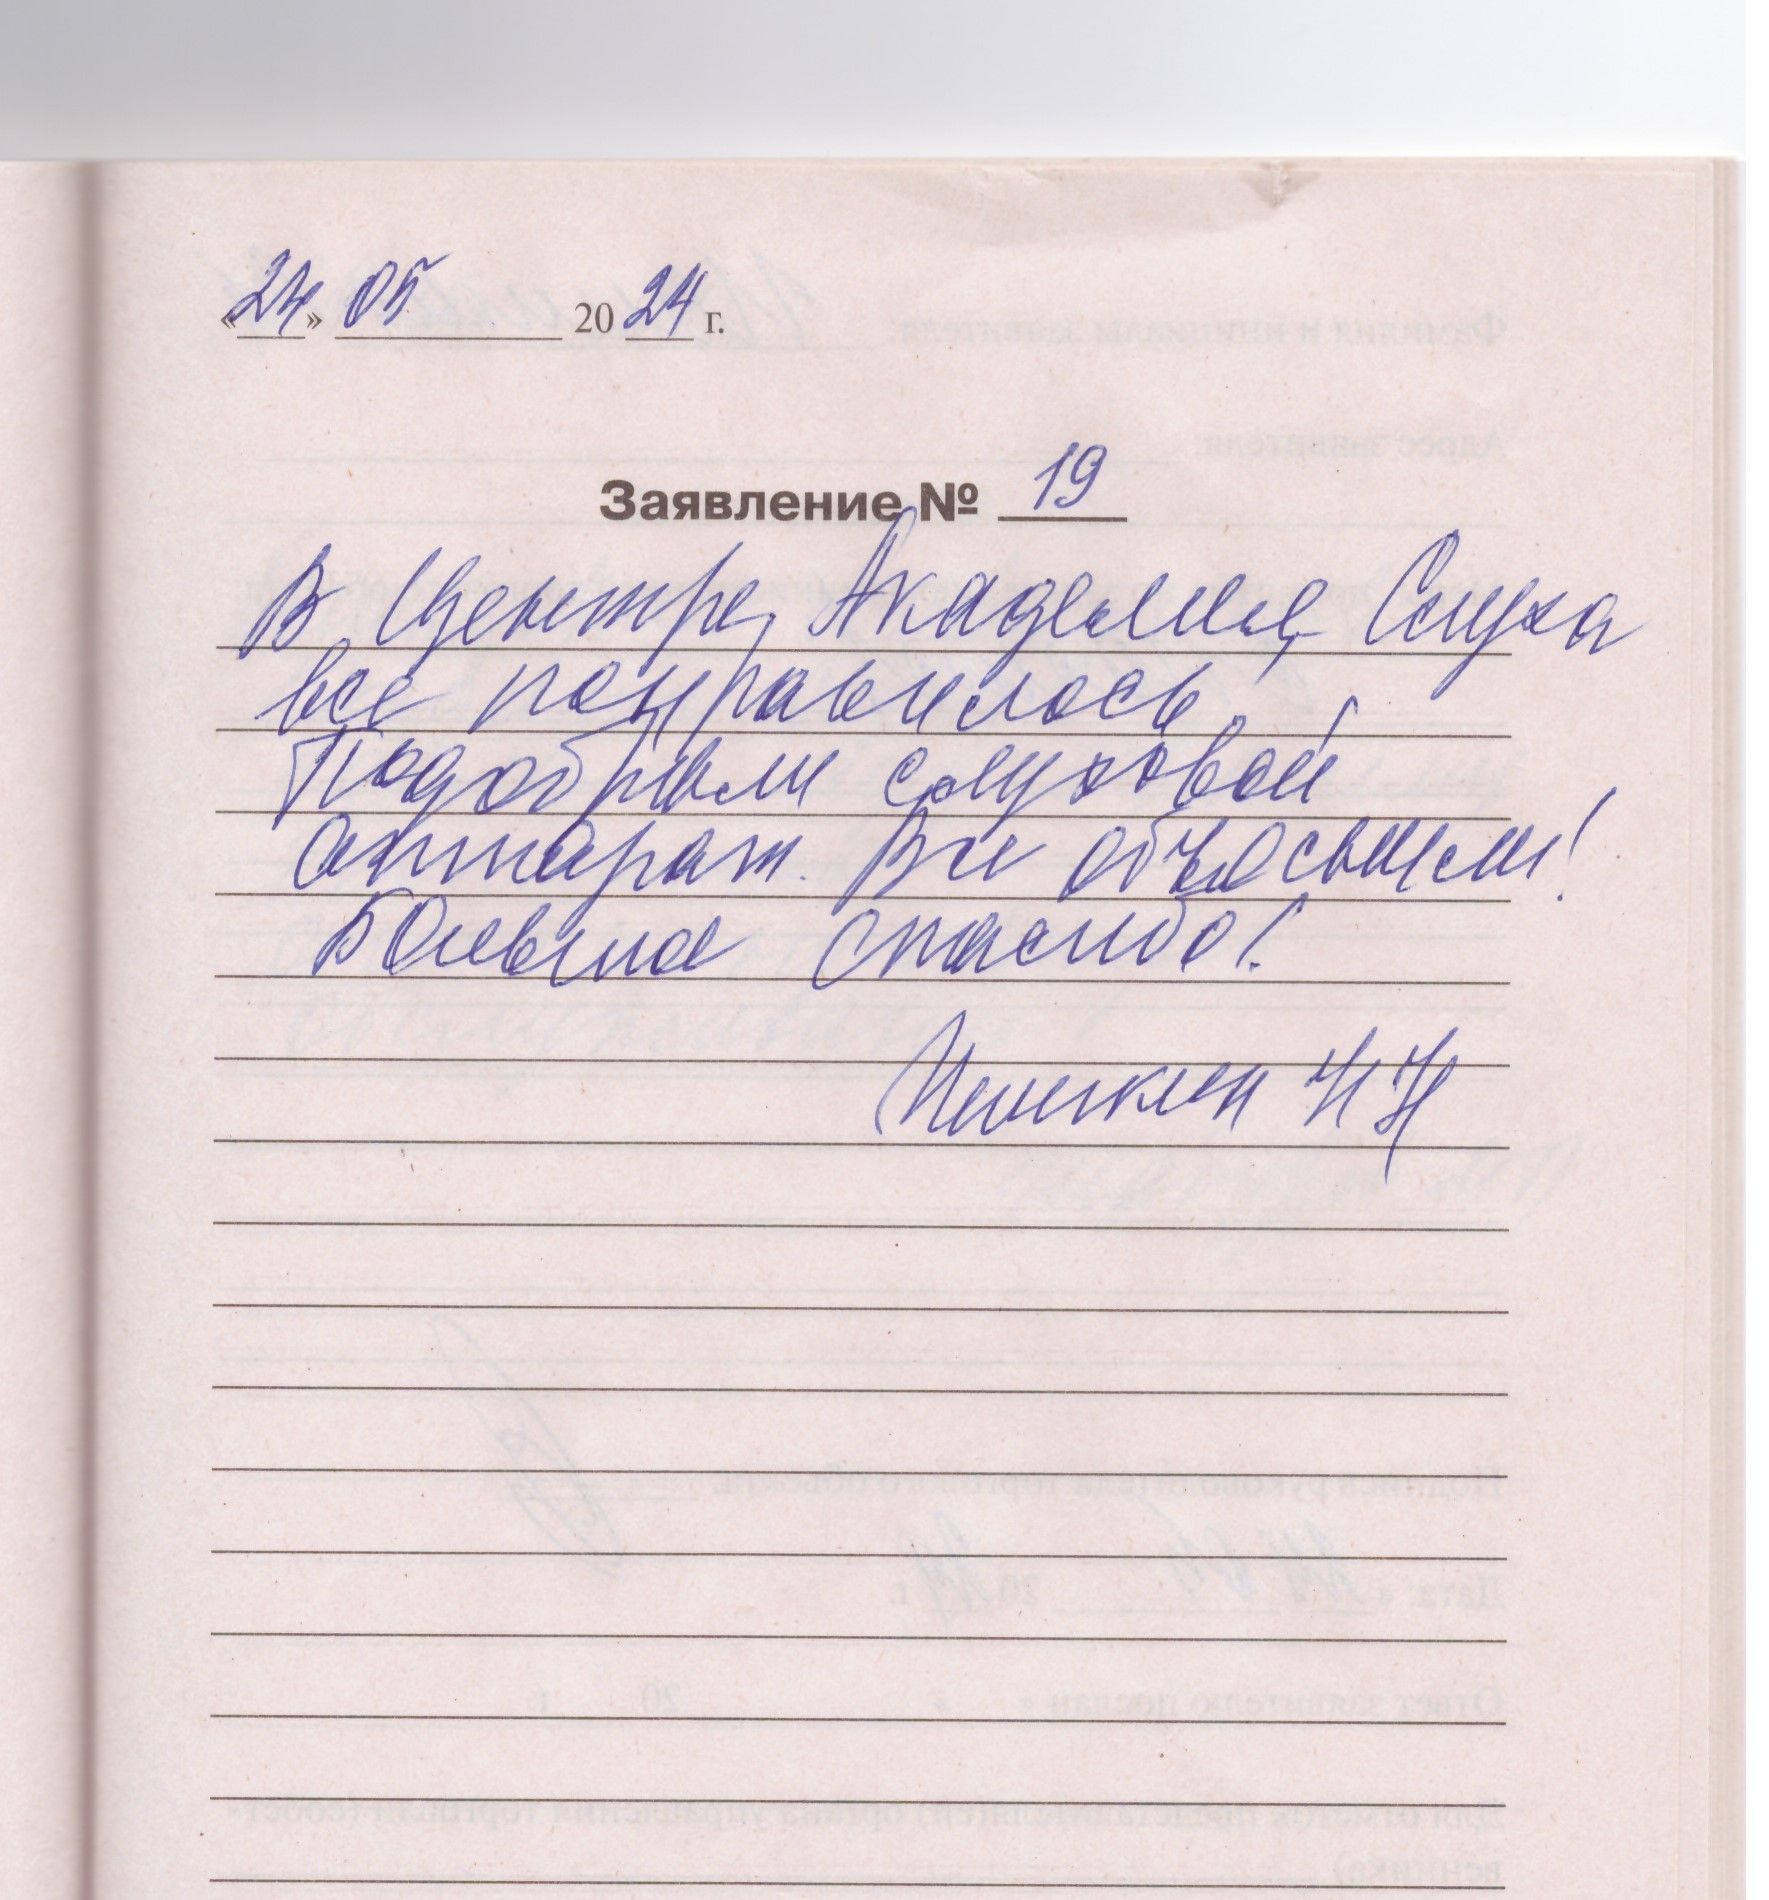 «24» 05 2024 г.
Заявление № 19
В Центре, Академия Слуха
все понравилось.
Подобрали слуховой
аппарат. Все объяснили!
Большое спасибо!
Н Н